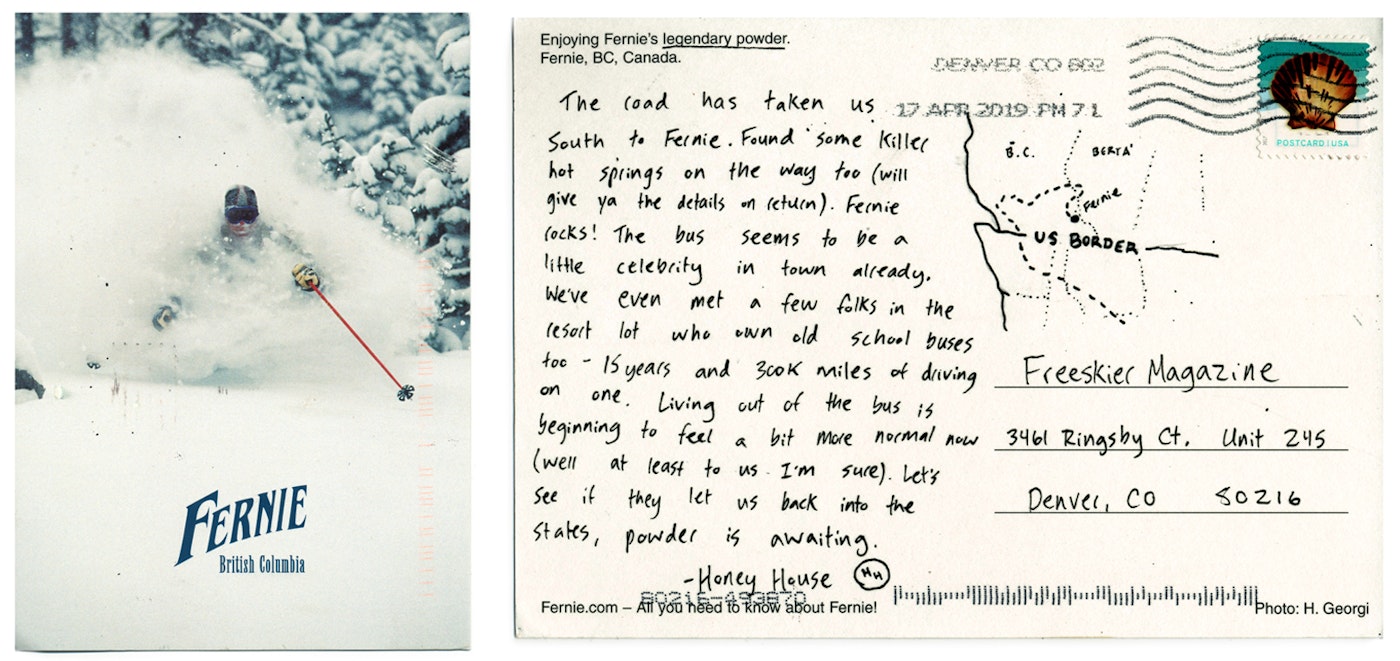 FERNIE
British Columbia
Enjoying Fernie's legendary powder.
Fernie, BC, Canada.
DENVER CO 802
17 APR 2019 PM 7 L
POSTCARD | USA
The road has taken us
South to Fernie. Found some killer
hot springs on the way too (will
give ya the details on return). Fernie
rocks! The bus seems to be a
little celebrity in town already.
We've even met a few folks in the
resort lot who own old school buses
too - 15 years and 300K miles of driving
on one. Living out of the bus is
beginning to feel a bit more normal now
(well at least to us I'm sure). Let's
see if they let us back into the
states, powder is awaiting.
-Honey House HH
B.C.
BERTA'
Fernie
US BORDER
Freeskier Magazine
3461 Ringsby Ct. Unit 245
Denver, CO 80216
80216-493870
Fernie.com – All you need to know about Fernie!
Photo: H. Georgi